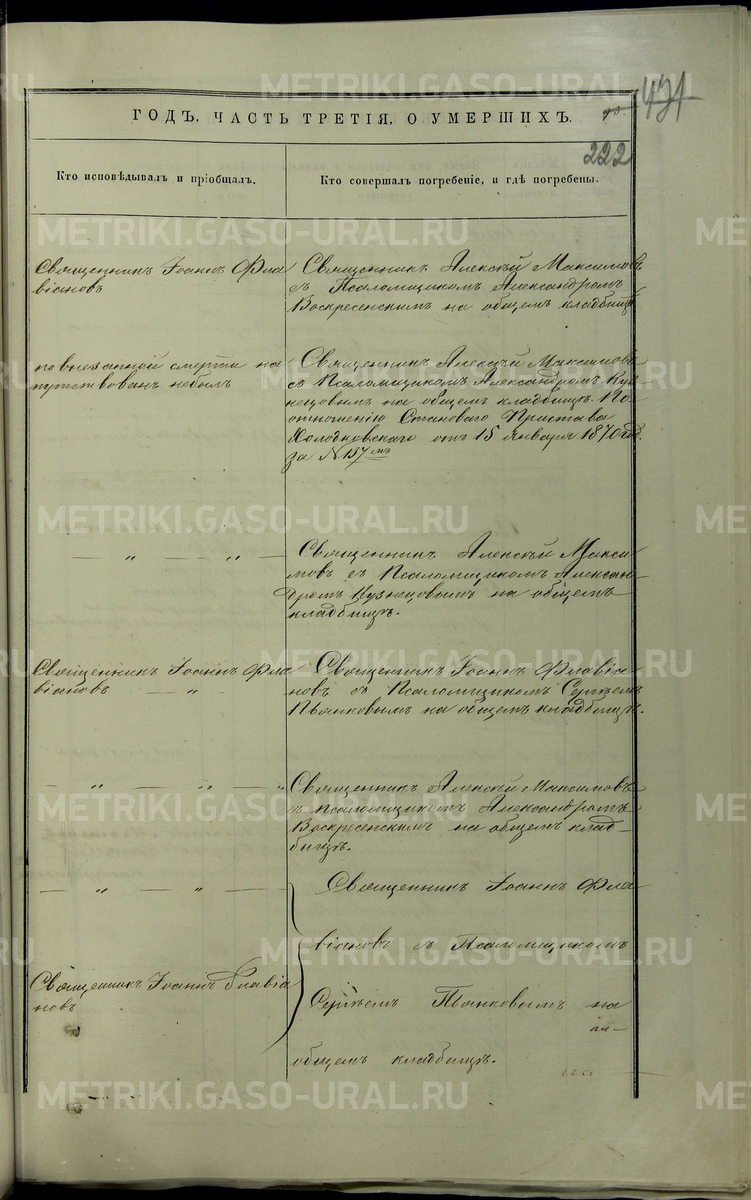 METRIKI.GASO-URAL.RU
471
ГОДЪ, ЧАСТЬ ТРЕТІЯ, О УМЕРШИХЪ.
222
Кто исповѣдывалъ и пріобщалъ.
Кто совершалъ погребеніе, и гдѣ погребены.
Священникъ Іоаннъ Фла
віановъ
Священникъ Алексѣй Максимовъ
съ Псаломщикомъ Александромъ
Воскресенскимъ на общемъ кладбищѣ
по внезапной смерти на
путствованъ небылъ
Священникъ Алексѣй Максимовъ
съ Псаломщикомъ Александромъ Куз
нецовымъ на общемъ кладбищѣ. По
отношенію Становаго Пристава
Холодковскаго отъ 15 января 1870 год.
за № 157мъ
— „ — „ —
Священникъ Алексѣй Макси
мовъ съ Псаломщикомъ Алексан
дромъ Кузнецовымъ на общемъ
кладбищѣ.
Священникъ Іоаннъ Фла
віановъ — „
Священникъ Іоаннъ Флавіа
новъ съ Псаломщикомъ Сергѣемъ
Пьянковымъ на общемъ кладбищѣ.
— „ — „ — „
Священникъ Алексѣй Максимовъ
съ Псаломщикомъ Александромъ
Воскресенскимъ на общемъ клад-
бищѣ.
— „ — „ —
Священникъ Іоаннъ Флавіа
новъ
Священникъ Іоаннъ Фла
віановъ съ Псаломщикомъ
Сергѣемъ Пьянковымъ на
общемъ кладбищѣ.